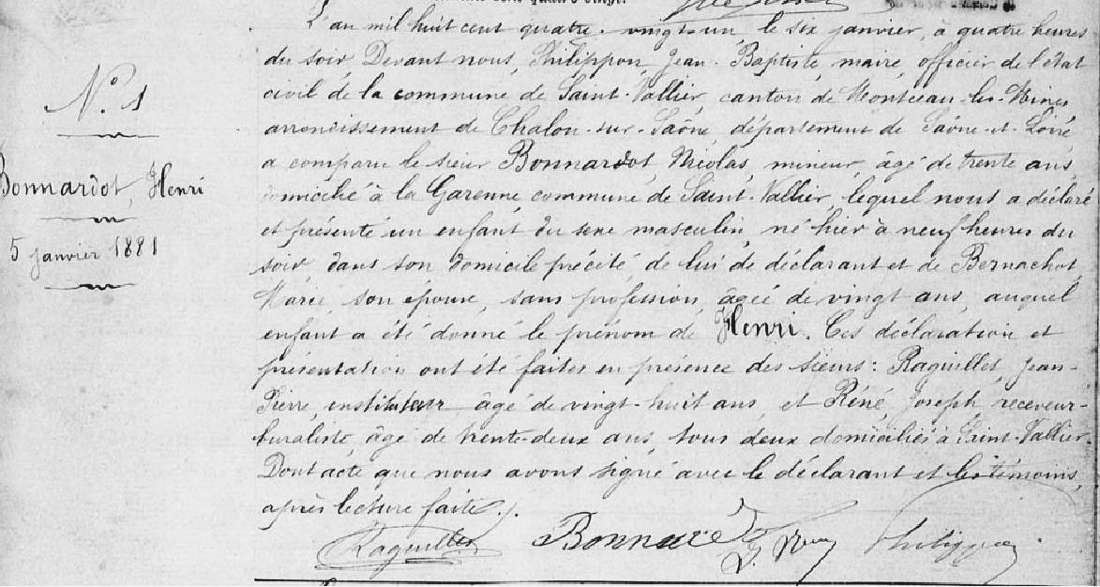 N.º 1
Bonnardot, Henri
5 janvier 1881
L'an mil huit cent quatre-vingt-un le six janvier, à quatre heures
du soir Devant nous, Philippon, Jean-Baptiste, maire, officier de l'état
civil de la commune de Saint-Vallier, canton de Montceau-les-Mines
arrondissement de Chalon-sur-Saône, département de Saône-et-Loire
a comparu le sieur Bonnardot, Nicolas, mineur, âgé de trente ans,
domicilié à la Garenne, commune de Saint-Vallier, lequel nous a déclaré
et présenté un enfant du sexe masculin, né hier à neuf heures du
soir, dans son domicile précité, de lui de déclarant et de Bernachot,
Marie, son épouse, sans profession, âgée de vingt ans, auquel
enfant a été donné le prénom de Henri. Ces déclaration et
présentation ont été faites en présence des sieurs: Raquillet, Jean-
Pierre, instituteur âgé de vingt-huit ans, et Réné, Joseph, receveur-
buraliste, âgé de trente-deux ans, tous deux domiciliés à Saint-Vallier.
Dont acte que nous avons signé avec le déclarant et les témoins,
après lecture faite./.
Raquillet Bonnardot Philippon